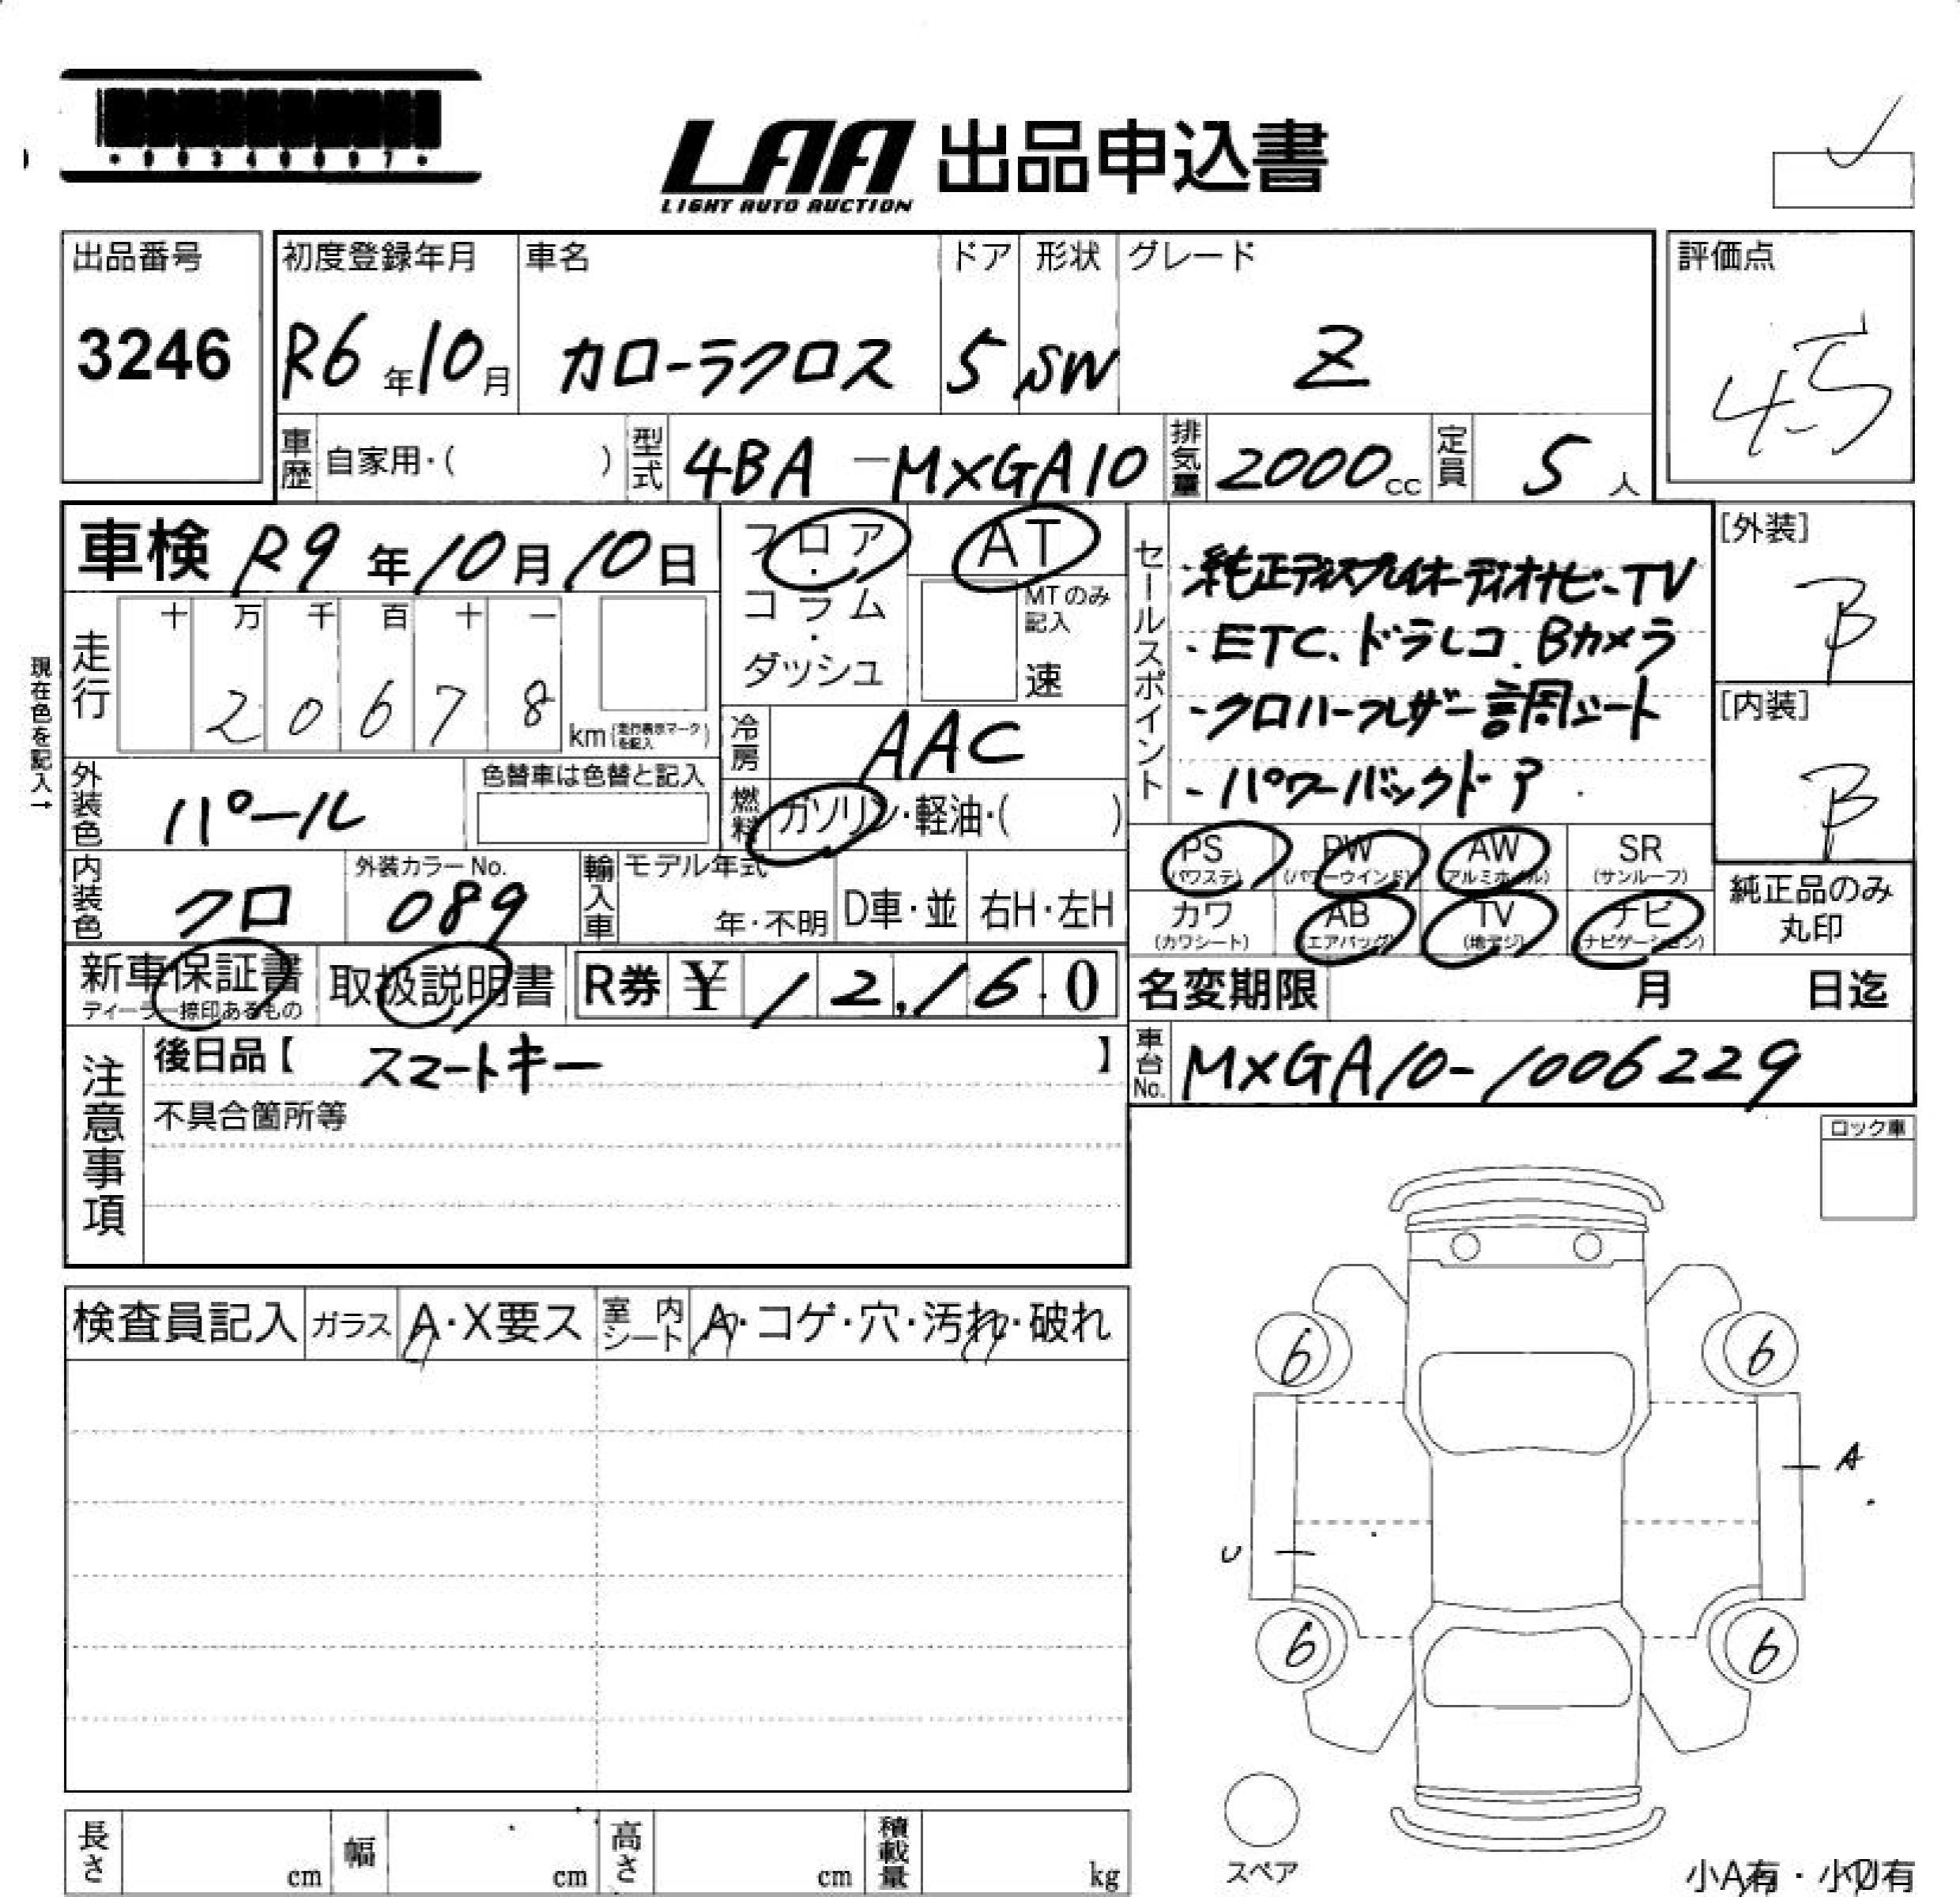 ・00340097・
LAA 出品申込書
LIGHT AUTO AUCTION
出品番号 初度登録年月 車名 ドア 形状 グレード 評価点
3246 R6年10月 カローラクロス 5 SW Z 4.5
車歴 自家用・( ) 型式 4BA-MXGA10 排気量 2000cc 定員 5人
車検 R9年10月10日 フロア・コラム・ダッシュ AT MTのみ記入 速
走行 十 万 千 百 十 一
2 0 6 7 8 km (走行表示マークを記入)
現在色を記入→
冷房 AAC
外装色 パール 色替車は色替と記入 燃料 ガソリン・軽油・( )
内装色 クロ 外装カラーNo. 089 輸入車 モデル年式 年・不明 D車・並 右H・左H
セールスポイント
・純正ディスプレイオーディオナビ-TV
・ETC、ドラレコ、Bカメラ
-クロハーフレザー調シート
-パワーバックドア
[外装] B
[内装] B
PS (パワステ) PW (パワーウインド) AW (アルミホイル) SR (サンルーフ)
カワ (カワシート) AB (エアバッグ) TV (地デジ) ナビ (ナビゲーション)
純正品のみ丸印
新車保証書 ディーラー捺印あるもの 取扱説明書 R券 ¥12,160
名変期限 月 日迄
車台No. MXGA10-1006229
注意事項
後日品【 スマートキー 】
不具合箇所等
ロック車
検査員記入 ガラス A・X要ス 室内シート A・コゲ・穴・汚れ・破れ
6 6
A
U
6 6
スペア
小A有・小U有
長さ cm 幅 cm 高さ cm 積載量 kg